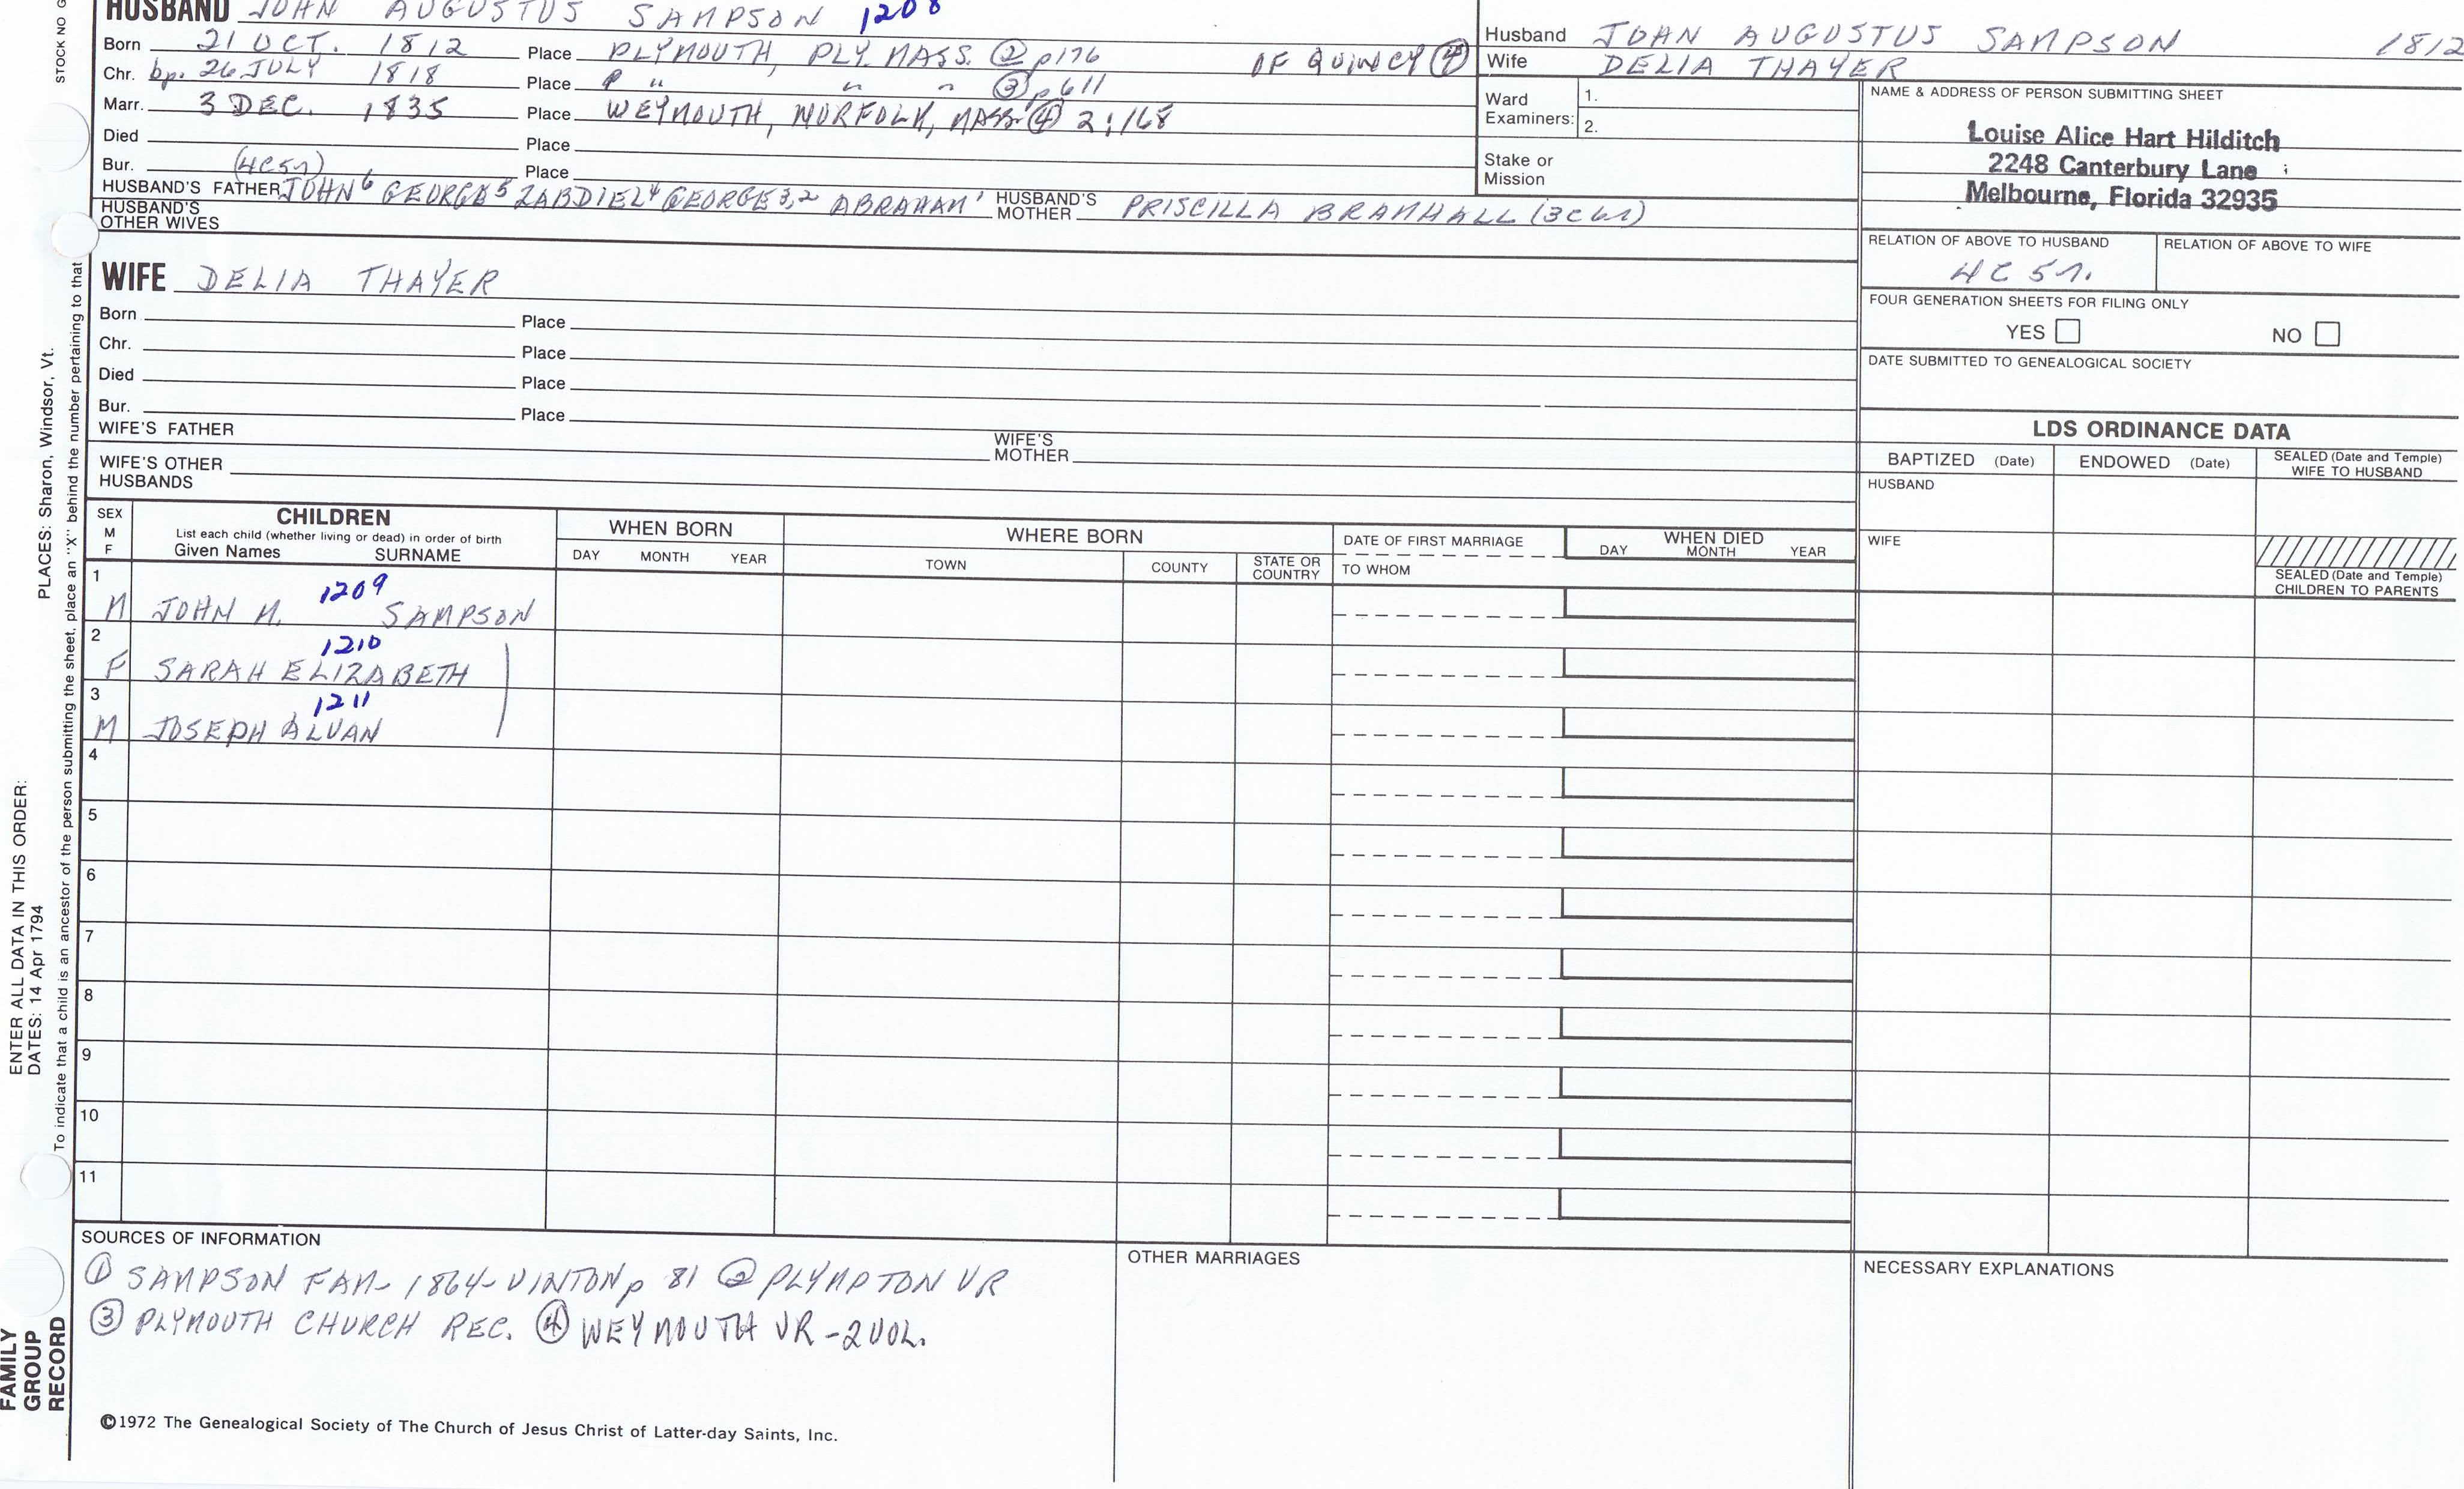 HUSBAND JOHN AUGUSTUS SAMPSON 1208
Born 21 OCT. 1812 Place PLYMOUTH, PLY. MASS. ② p176 OF QUINCY ④
Chr. bp. 26 JULY 1818 Place P " " " ③ p611
Marr. 3 DEC. 1835 Place WEYMOUTH, NORFOLK, MASS. ④ 2:168
Died Place
Bur. (4C5r) Place
HUSBAND'S FATHER JOHN 6 GEORGE 5 ZABDIEL 4 GEORGE 3,2 ABRAHAM 1 HUSBAND'S MOTHER PRISCILLA BRAMHALL (3C6r)
HUSBAND'S OTHER WIVES
Husband JOHN AUGUSTUS SAMPSON 1812
Wife DELIA THAYER
Ward Examiners: 1.
2.
Stake or Mission
NAME & ADDRESS OF PERSON SUBMITTING SHEET
Louise Alice Hart Hilditch
2248 Canterbury Lane
Melbourne, Florida 32935
RELATION OF ABOVE TO HUSBAND RELATION OF ABOVE TO WIFE
4C5r.
FOUR GENERATION SHEETS FOR FILING ONLY
YES NO
DATE SUBMITTED TO GENEALOGICAL SOCIETY
WIFE DELIA THAYER
Born Place
Chr. Place
Died Place
Bur. Place
WIFE'S FATHER WIFE'S MOTHER
WIFE'S OTHER HUSBANDS
LDS ORDINANCE DATA
BAPTIZED (Date) ENDOWED (Date) SEALED (Date and Temple) WIFE TO HUSBAND
HUSBAND
WIFE
SEALED (Date and Temple)
CHILDREN TO PARENTS
SEX
M
F
CHILDREN
List each child (whether living or dead) in order of birth
Given Names SURNAME
WHEN BORN
DAY MONTH YEAR
WHERE BORN
TOWN COUNTY STATE OR COUNTRY
DATE OF FIRST MARRIAGE
TO WHOM
WHEN DIED
DAY MONTH YEAR
1 1209
M JOHN M. SAMPSON
2 1210
F SARAH ELIZABETH
3 1211
M JOSEPH ALVAN
4
5
6
7
8
9
10
11
SOURCES OF INFORMATION
① SAMPSON FAM- 1864- VINTON p 81 ② PLYMPTON VR
③ PLYMOUTH CHURCH REC. ④ WEYMOUTH VR - 2 VOL.
OTHER MARRIAGES
NECESSARY EXPLANATIONS
©1972 The Genealogical Society of The Church of Jesus Christ of Latter-day Saints, Inc.
STOCK NO G
ENTER ALL DATA IN THIS ORDER:
DATES: 14 Apr 1794
PLACES: Sharon, Windsor, Vt.
To indicate that a child is an ancestor of the person submitting the sheet, place an "X" behind the number pertaining to that
FAMILY
GROUP
RECORD